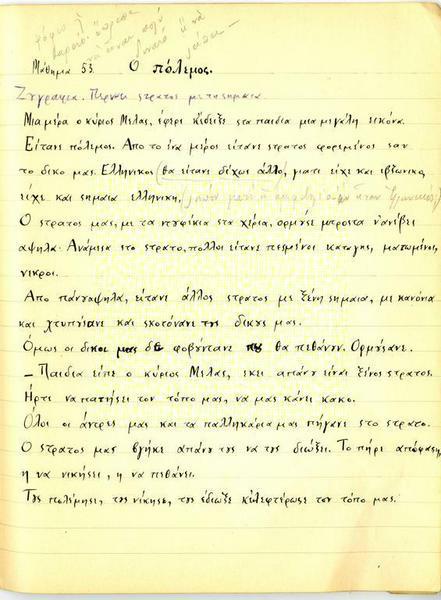 Μάθημα 53. Ο πόλεμος.
Ζυγραφια. Περνει στρατος με τη σημαια.
Μια μέρα ο κύριος Μελας, έφερε κ' έδειξε στα παιδια μια μεγάλη εικόνα.
Είτανε πόλεμος. Απο το ένα μέρος είτανε στρατος φορεμένος σαν
το δικο μας. Ελληνικος (θα είτανε δίχως άλλο, γιατι είχε και εβζωνικο,
είχε και σημαια ελληνικη,
Ο στρατος μας, με τα ντυφέκια στα χέρια, ορμύσε μπροστα ν' ανέβει
αψηλα. Ανάμεσα στο στρατο, πολλοι είτανε πεσμένοι καταγης, ματωμένοι,
νεκροι.
Απο πάνυ αψηλα, είτανε άλλος στρατος με ξένη σημαια, με κανόνια
και χτυπύσανε και σκοτόνανε τυς δικυς μας.
Όμως οι δικοι μας δε φοβύντανε θα πεθάνυν. Ορμύσανε.
– Παιδια είπε ο κύριος Μελας, εκει απάνυ είναι ξένος στρατος.
Ήρτε να πατήσει τον τόπο μας, να μας κάνει κακο.
Όλοι οι άντρες μας και τα παλληκάρια μας πήγανε στο στρατο.
Ο στρατος μας βγήκε απάνυ τυς να τυς διώξει. Το πήρε απόφαση,
η να νικήσει, η να πεθάνει.
Τυς πολέμησε, τυς νίκησε, τυς έδιωξε κ' ελεφτέρωσε τον τόπο μας.